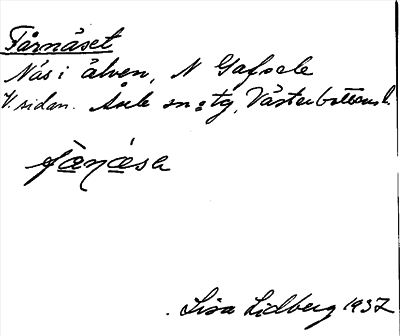 Tårnäset
Näs i älven, N Gafsele
V. sidan. Åsele sn o tg, Västerbottens l.
Lisa Lidberg 1937